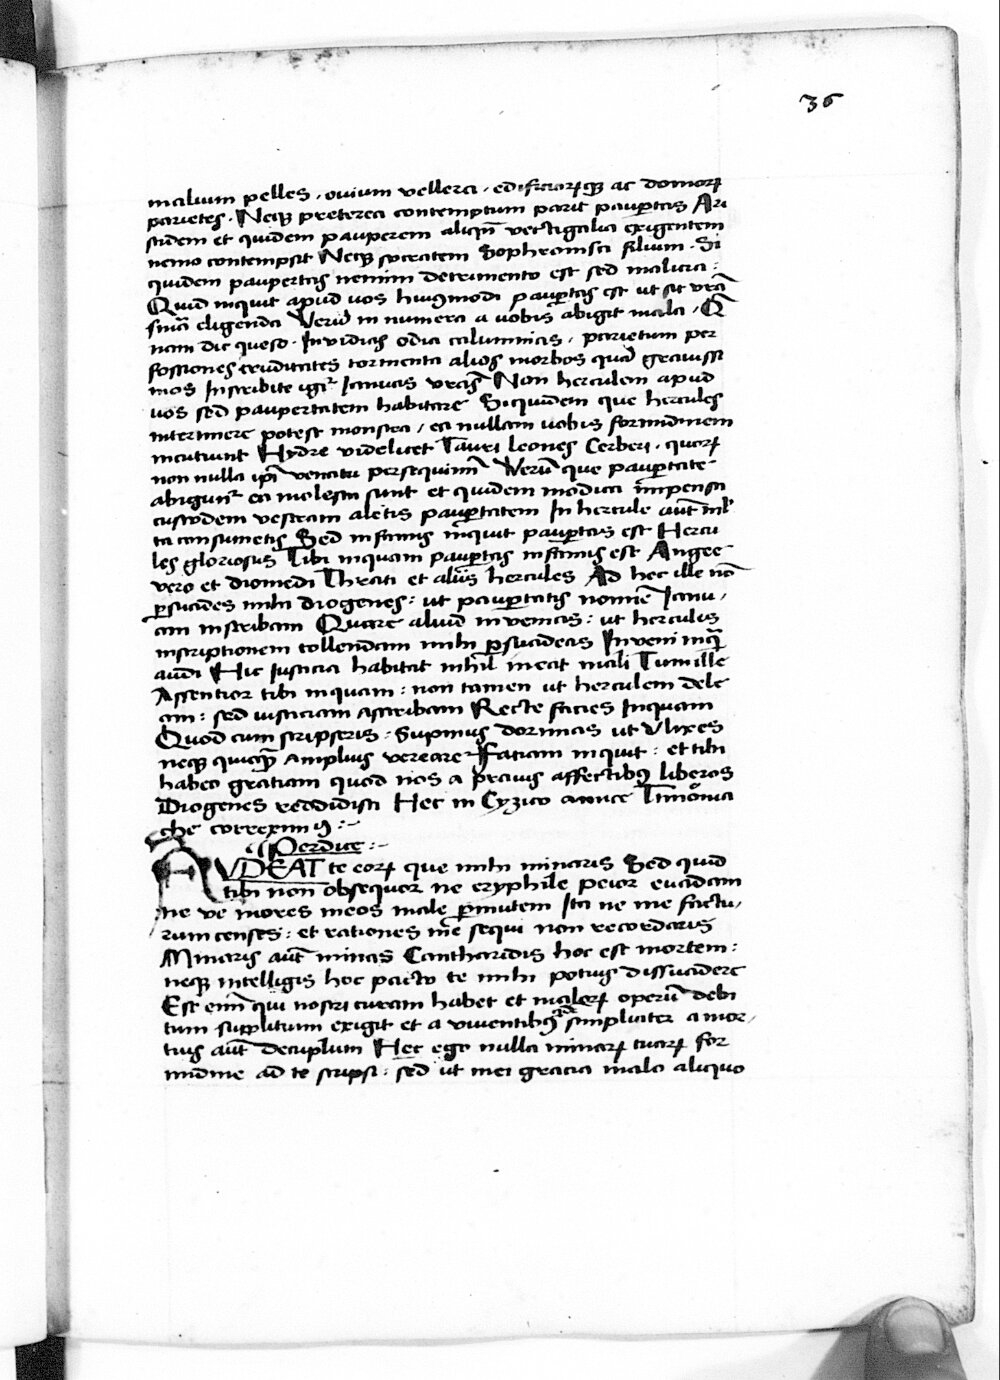 36
malium pelles . ouium vellera . edificiorūqꝫ ac domoꝝ
parietes . Neqꝫ preterea contemptum parit paupertas Ari
stidem et quidem pauperem aliqñ vectigalia exigentem
nemo contempsit Neqꝫ socratem Sophronisci filium . Si
quidem paupertas nemini detrimento est sed malicia :
Quid inquit apud uos huiusmodi paupertas est ut sit vrā
eligenda Verū innumera a vobis abigit mala .
nam dic queso . Inuidias odia calumnias . parietum per
fossiones cruditates tormenta alios morbos quā grauissi
mos Inscribite igit̄ Ianuas vrās Non herculem apud
uos sed paupertatem habitare Siquidem que hercules
interimere potest monstra / ea nullam uobis formidinem
incutiunt Hydre videlicet Tauri leones Cerberi . quoꝝ
non nulla ipī venatu persequimī Verū que paupertate
abigunt̄ ea molesta sunt et quidem modica impensa
custodem vestram aletis paupertatem In hercule aūt ml̄
ta consumetis Sed infamis inquit paupertas est Hercu
les gloriosus Tibi inquam paupertas infamis est Augee
vero et diomedi Thraci et aliis hercules Ad hec ille nō
persuades mihi diogenes : ut paupertatis nomine Ianu /
am inscribam Quare aliud inuenias : ut herculis
inscriptionem tollendam mihi persuadeas Inueni inqꝫ
audi Hic Iusticia habitat nihil ineat mali Tum ille
Assentior tibi inquam : non tamen ut herculem dele
am : sed iusticiam asscribam Recte facies Inquam
Quod cum scripseris : Supinus dormias ut Vlixes
neqꝫ quicqꝫ amplius vereare Faciam inquit : et tibi
habeo gratiam quod nos a prauis affectibꝰ liberos
Diogenes reddidisti Hec in Cyzico amice Timōma
che correximꝰ :~
Perdice :~
AVDEAT te eoꝝ que mihi minaris Sed quid
tibi non obsequor ne eryphile peior euadam
ne ve mores meos male permutem Ita ne me factu /
rum censes : et rationes mē sequi non recordaris
Minaris aūt minas Cantharidis hoc est mortem :
neqꝫ intelligis hoc pacto te mihi potius dissuadere
Est enī qui nostri curam habet et maloꝝ operū debi
tum supplitium exigit et a viuentibꝰ simpliciter a mor /
tuis aūt decuplum Hec ego nulla minaꝝ tuaꝝ for
midine ad te scripsi : sed ut mei gracia malo aliquo